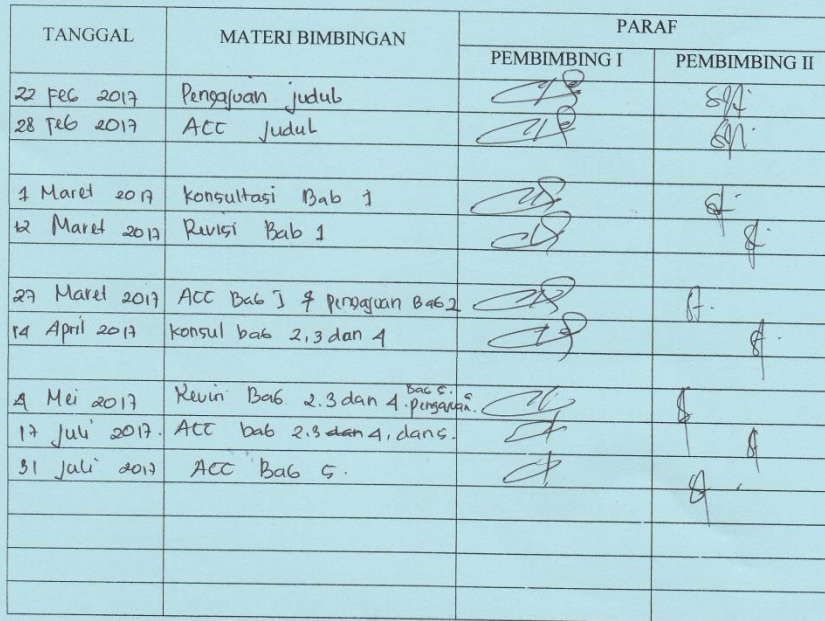 TANGGAL MATERI BIMBINGAN PARAF
PEMBIMBING I PEMBIMBING II
22 Feb 2017 Pengajuan judul
28 Feb 2017 ACC judul
1 Maret 2017 Konsultasi Bab 1
12 Maret 2017 Revisi Bab 1
27 Maret 2017 ACC Bab 1 & pengajuan Bab 2
14 April 2017 konsul bab 2,3 dan 4
Bab 5.
4 Mei 2017 Bab 2.3 dan 4. pengajuan.
17 Juli 2017. ACC bab 2.3 dan 4, dan 5.
31 Juli 2017 ACC Bab 5.